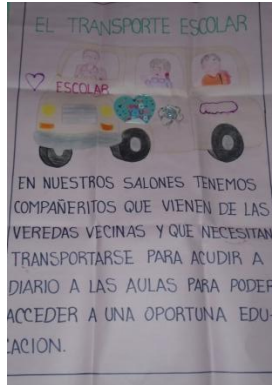 EL TRANSPORTE ESCOLAR
ESCOLAR
EN NUESTROS SALONES TENEMOS
COMPAÑERITOS QUE VIENEN DE LAS
VEREDAS VECINAS Y QUE NECESITAN
TRANSPORTARSE PARA ACUDIR A
DIARIO A LAS AULAS PARA PODER
ACCEDER A UNA OPORTUNA EDU-
CACION.